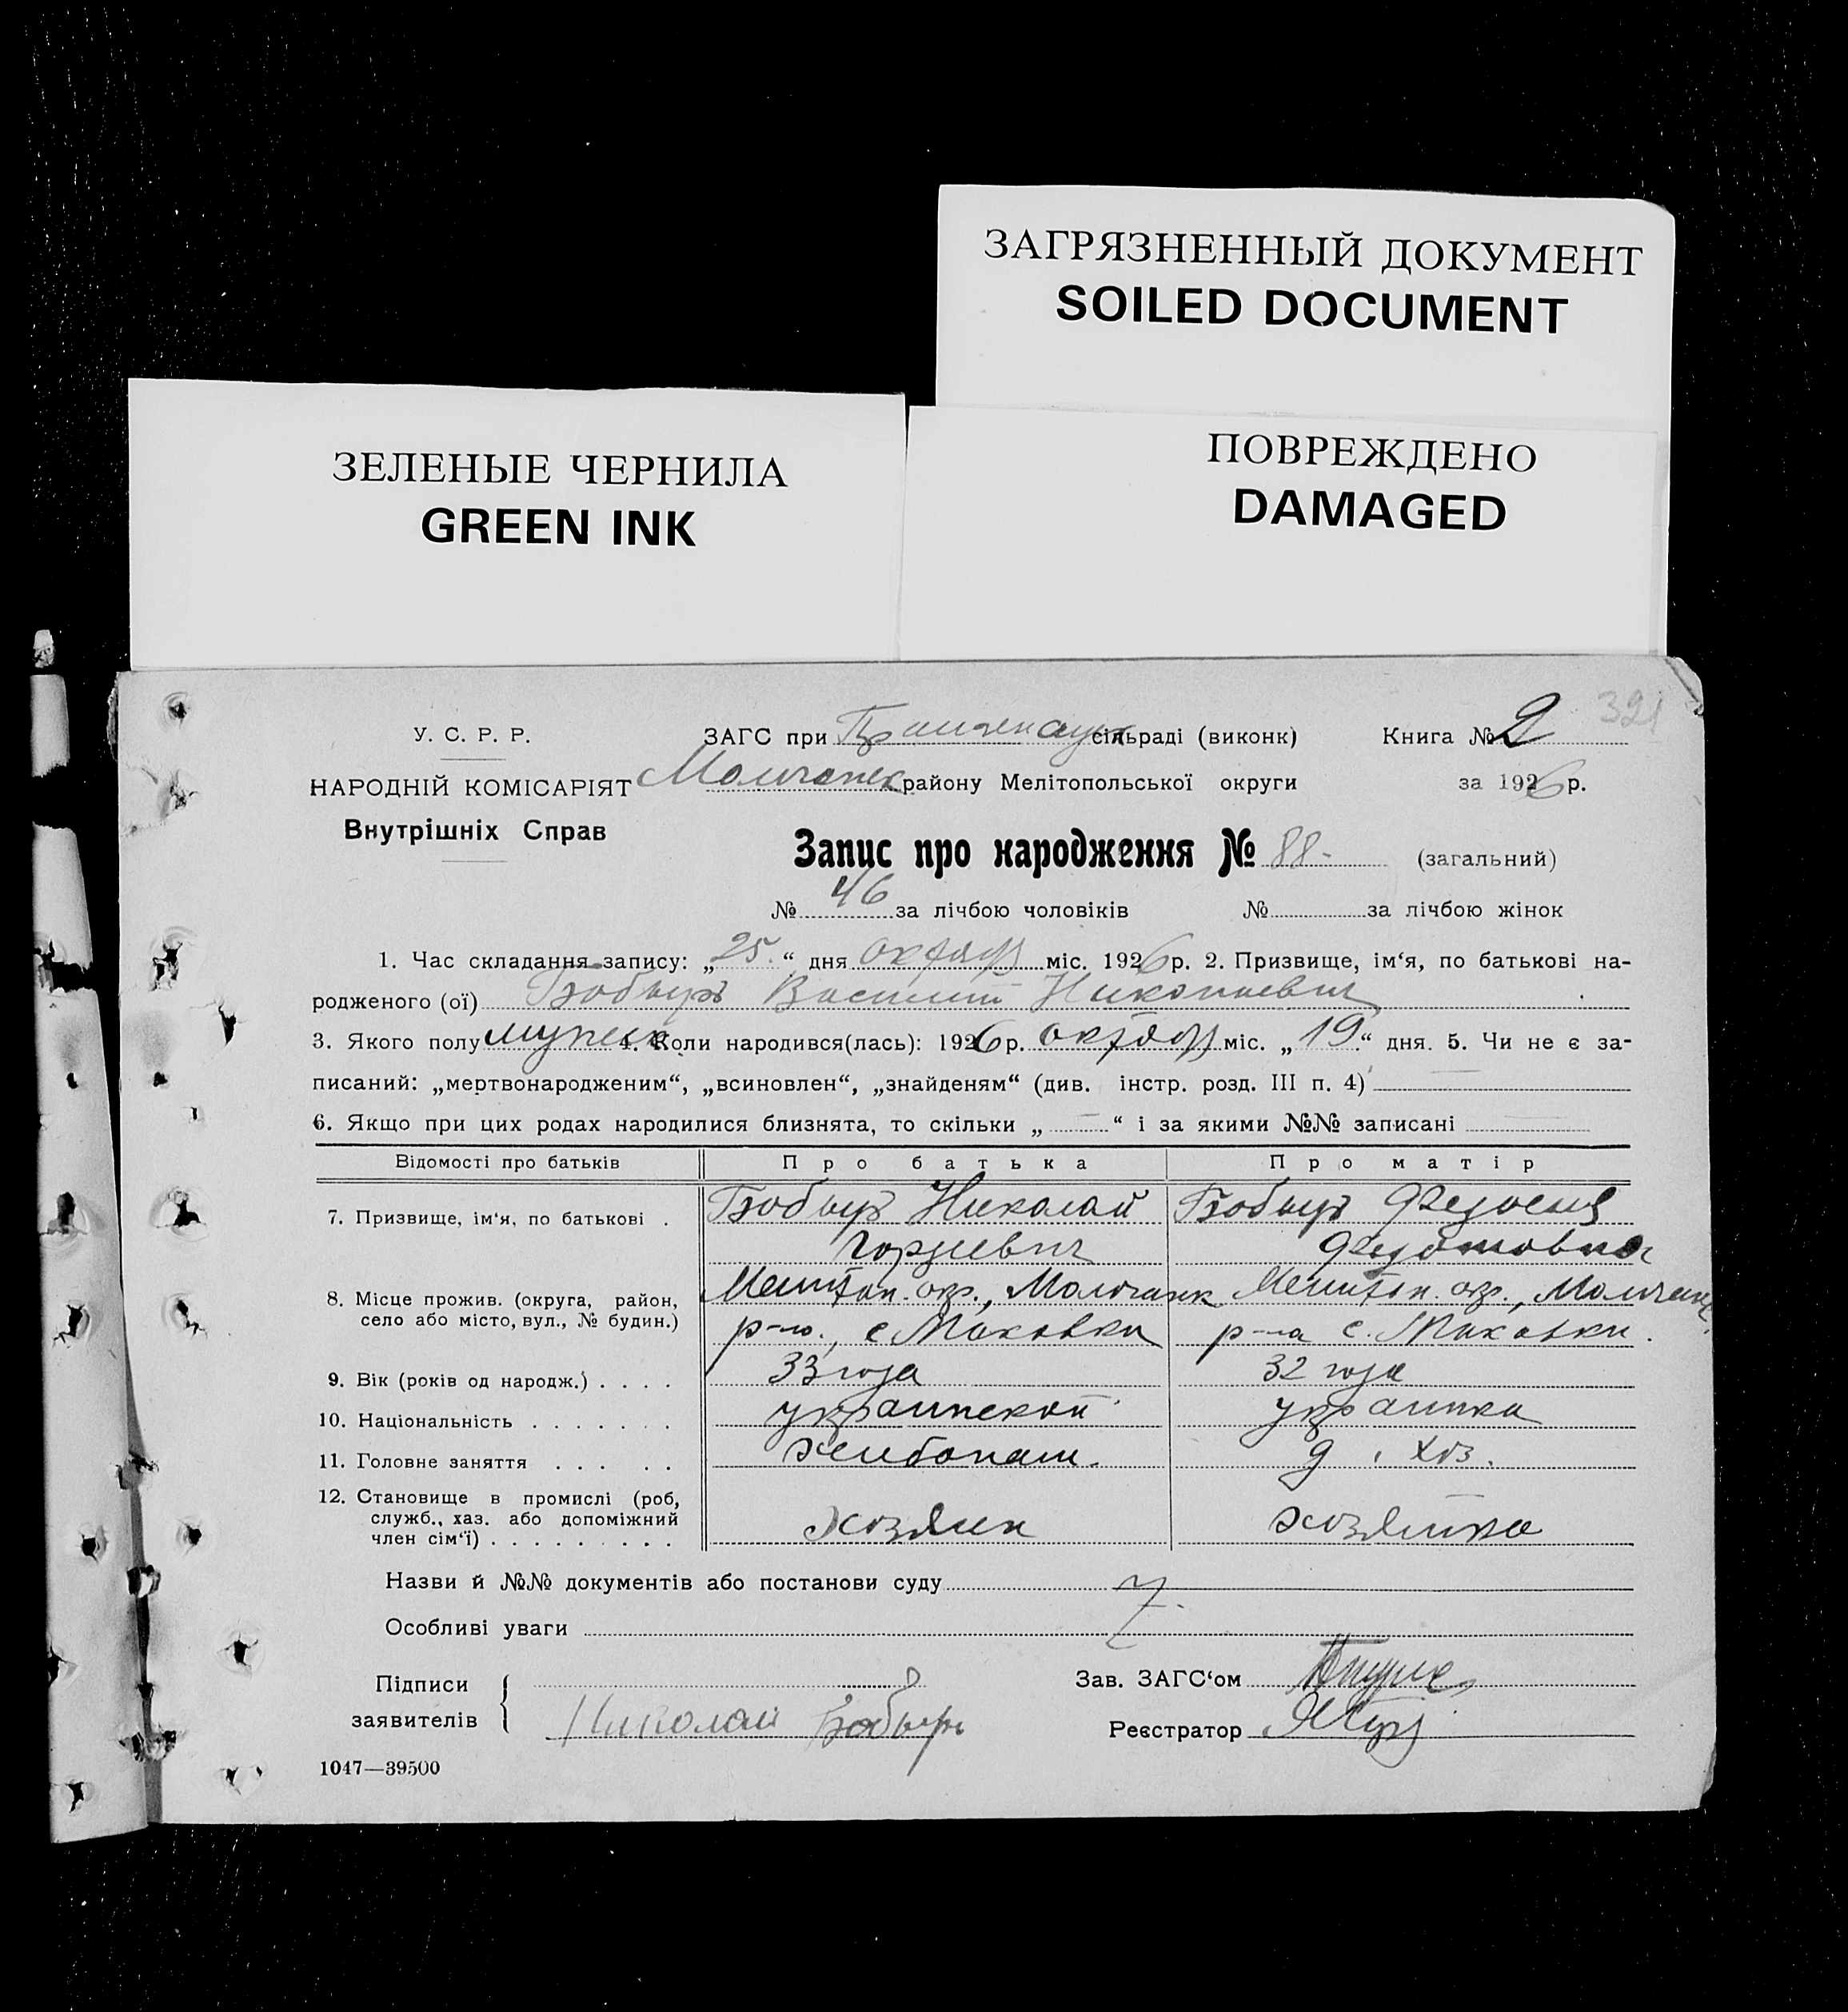 ЗАГРЯЗНЕННЫЙ ДОКУМЕНТ
SOILED DOCUMENT
ЗЕЛЕНЫЕ ЧЕРНИЛА
GREEN INK
ПОВРЕЖДЕНО
DAMAGED
321
У. С. Р. Р.
ЗАГС при сільраді (виконк)
Книга № 2
НАРОДНІЙ КОМІСАРІЯТ
Молочанск району Мелітопольської округи
за 1926 р.
Внутрішніх Справ
Запис про народження № 88- (загальний)
№ 46 за лічбою чоловіків № за лічбою жінок
1. Час складання запису: „25.“ дня октября міс. 1926 р. 2. Призвище, ім‘я, по батькові на-
родженого (ої) Бобырь Василий Николаевич
3. Якого полу мужск. 4. Коли народився(лась): 1926 р. октября міс. „19“ дня. 5. Чи не є за-
писаний: „мертвонародженим“, „всиновлен“, „знайденям“ (див. інстр. розд. III п. 4)
6. Якщо при цих родах народилися близнята, то скільки „—“ і за якими №№ записані
Відомості про батьків
Про батька
Про матір
7. Призвище, ім‘я, по батькові .
Бобырь Николай
Гордиевич
Бобырь Федосия
Федотовна
8. Місце прожив. (округа, район,
село або місто, вул., № будин.)
Мелитоп. окр., Молочанск
р-на., с Маковки
Мелитоп. окр., Молочанс.
р-на с. Маковки.
9. Вік (років од народж.) . . . .
33 года
32 года
10. Національність . . . . . . .
украинской
украинка
11. Головне заняття . . . . .
хлибопаш.
д. хоз.
12. Становище в промислі (роб,
служб., хаз. або допоміжний
член сім‘ї) . . . . . . . . .
хозяин
хозяйка
Назви й №№ документів або постанови суду
Особливі уваги
Підписи
заявителів
Николай Бобырь
Зав. ЗАГС‘ом
Реєстратор
1047—39500